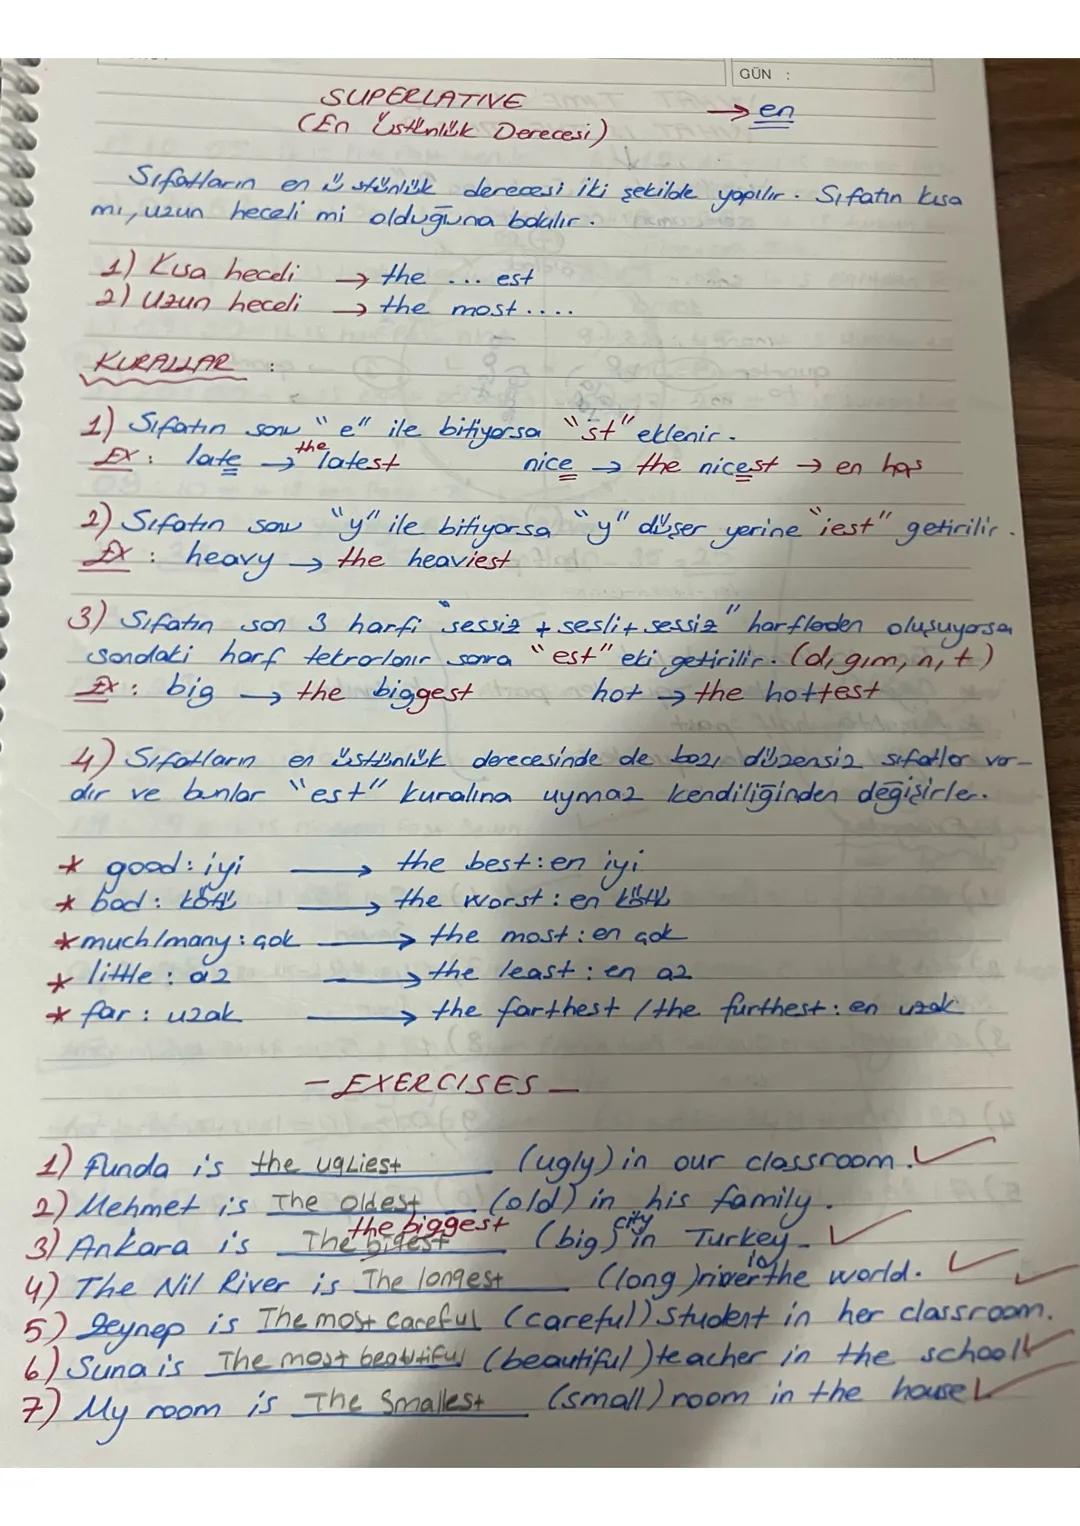 GÜN :
SUPERLATIVE → en
(En Üstünlük Derecesi)
Sıfatların en üstünlük derecesi iki şekilde yapılır. Sıfatın kısa
mı, uzun heceli mi olduğuna bakılır.
1) Kısa heceli → the ... est
2) Uzun heceli → the most ....
KURALLAR :
1) Sıfatın sonu "e" ile bitiyorsa "st" eklenir.
EX : late → the latest nice → the nicest → en hoş
2) Sıfatın sonu "y" ile bitiyorsa "y" düşer yerine "iest" getirilir.
EX : heavy → the heaviest
3) Sıfatın son 3 harfi "sessiz + sesli + sessiz" harflerden oluşuyorsa
sondaki harf tekrarlanır sonra "est" eki getirilir. (d, g, m, n, t)
EX : big → the biggest hot → the hottest
4) Sıfatların en üstünlük derecesinde de bazı düzensiz sıfatlar var-
dır ve bunlar "est" kuralına uymaz kendiliğinden değişirler.
* good : iyi → the best : en iyi
* bad : kötü → the worst : en kötü
* much/many : çok → the most : en çok
* little : az → the least : en az
* far : uzak → the farthest / the furthest : en uzak
- EXERCISES -
1) Funda is the ugLiest (ugly) in our classroom.
2) Mehmet is The oldest (old) in his family.
the biggest
3) Ankara is The bigest (big) city in Turkey.
4) The Nil River is The longest (long) river in the world.
5) Zeynep is The most careful (careful) student in her classroom.
6) Suna is The most beatutiful (beautiful) teacher in the school
7) My room is The Smallest (small) room in the house